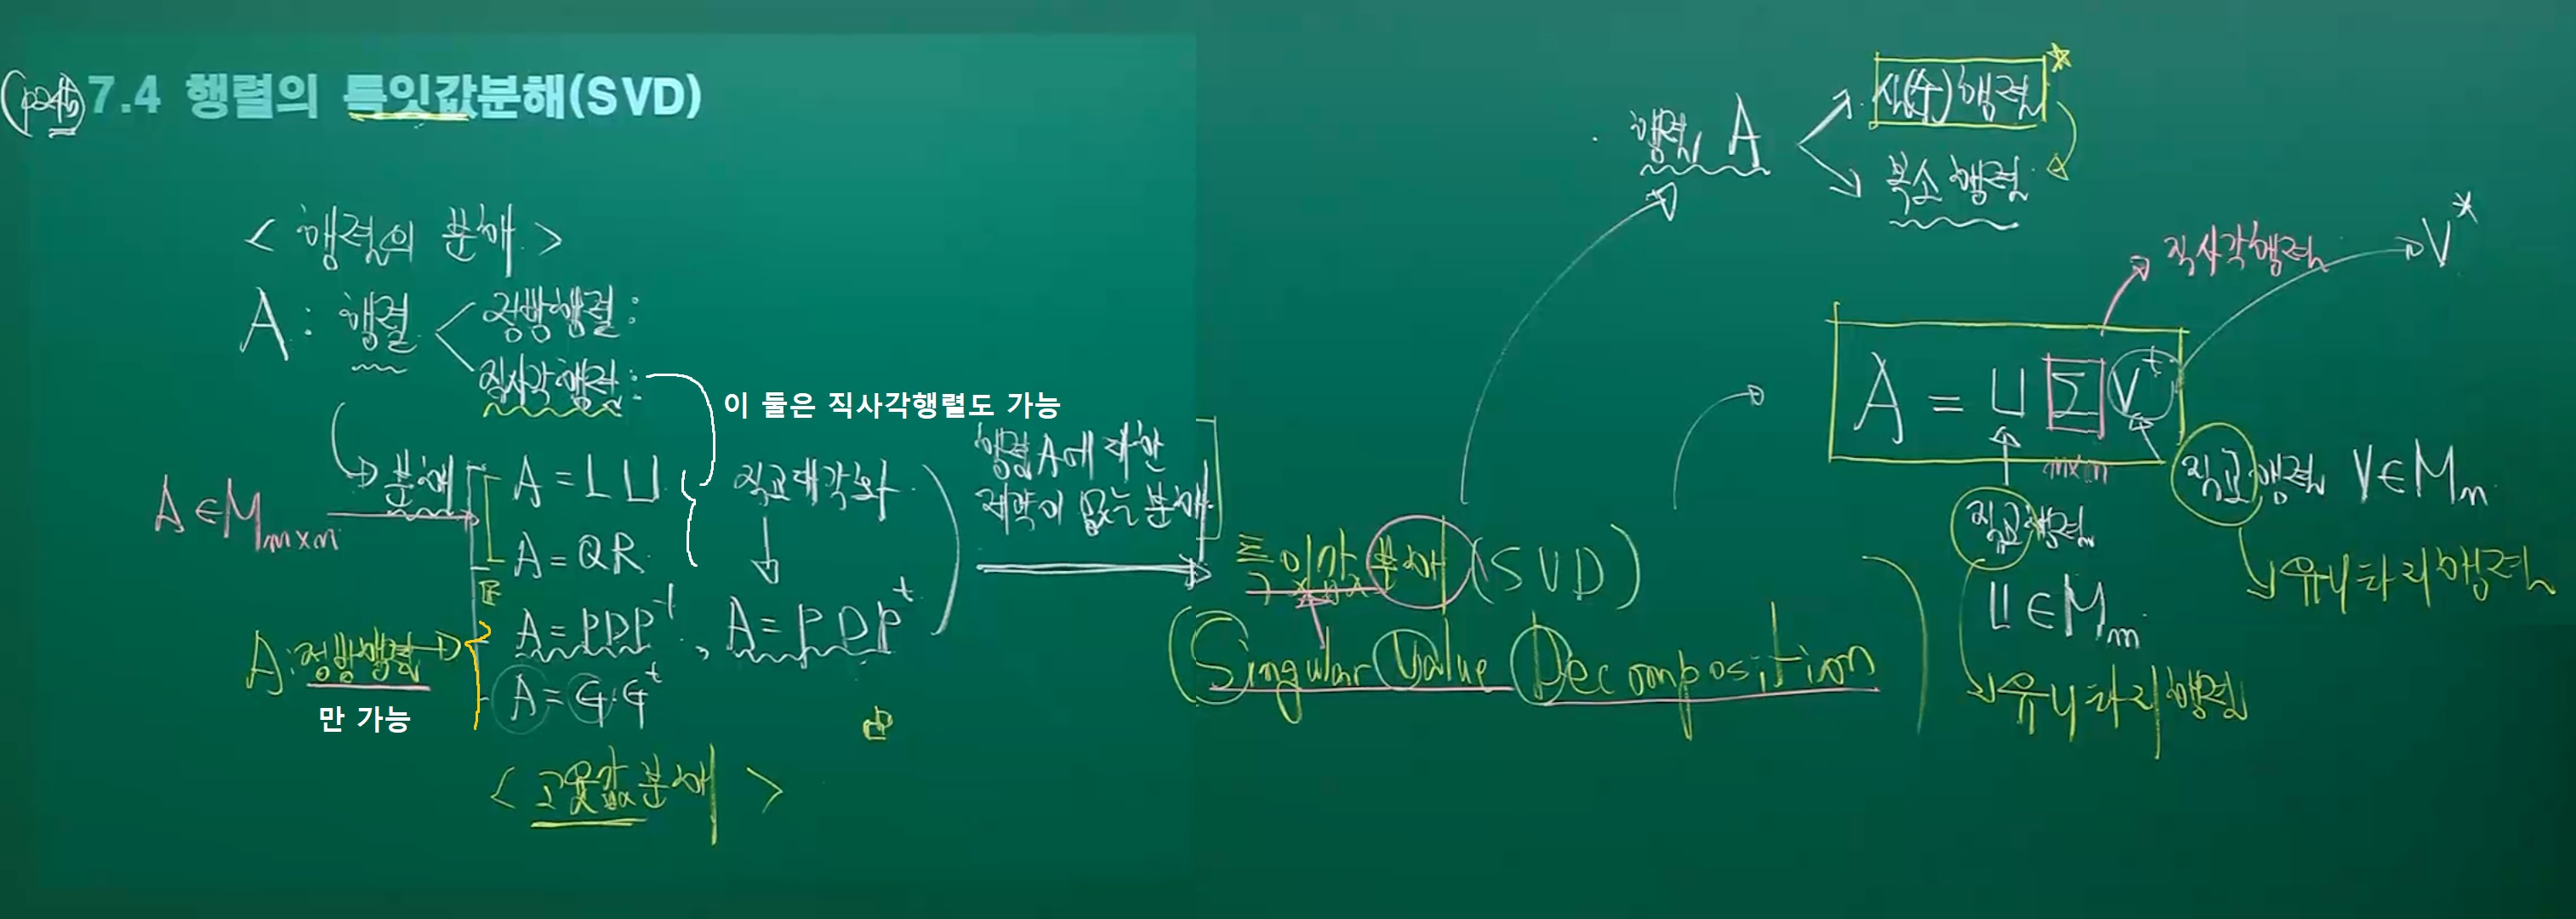 (p245) 7.4 행렬의 특잇값분해(SVD)
< 행렬의 분해 >
A : 행렬 < 정방행렬 :
직사각행렬 :
이 둘은 직사각행렬도 가능
A ∈ M m×n
→ 분해
A = L U
A = QR
직교대각화
A = PDP⁻¹ , A = PDPᵗ
A : 정방행렬
만 가능
A = G·Gᵗ
< 고윳값 분해 >
행렬 A에 대한
제약이 없는 분해
특이값 분해 (SVD)
(Singular Value Decomposition
행렬 A
실(수)행렬 *
복소행렬
직사각행렬
V*
A = U Σ Vᵗ
m×n
직교행렬
U ∈ Mm
유니타리행렬
직교행렬 V ∈ Mn
유니타리행렬